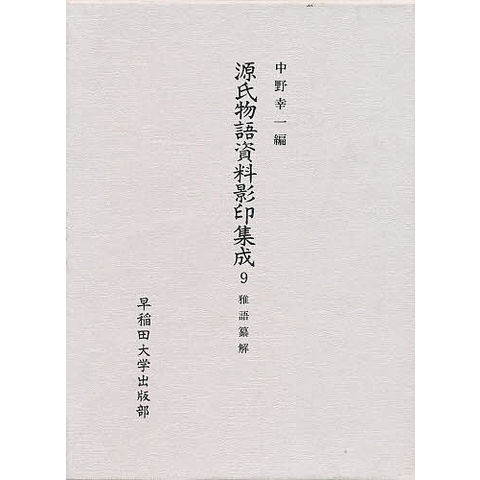 中野幸一編
源氏物語資料影印集成9 雅語纂解
早稲田大学出版部